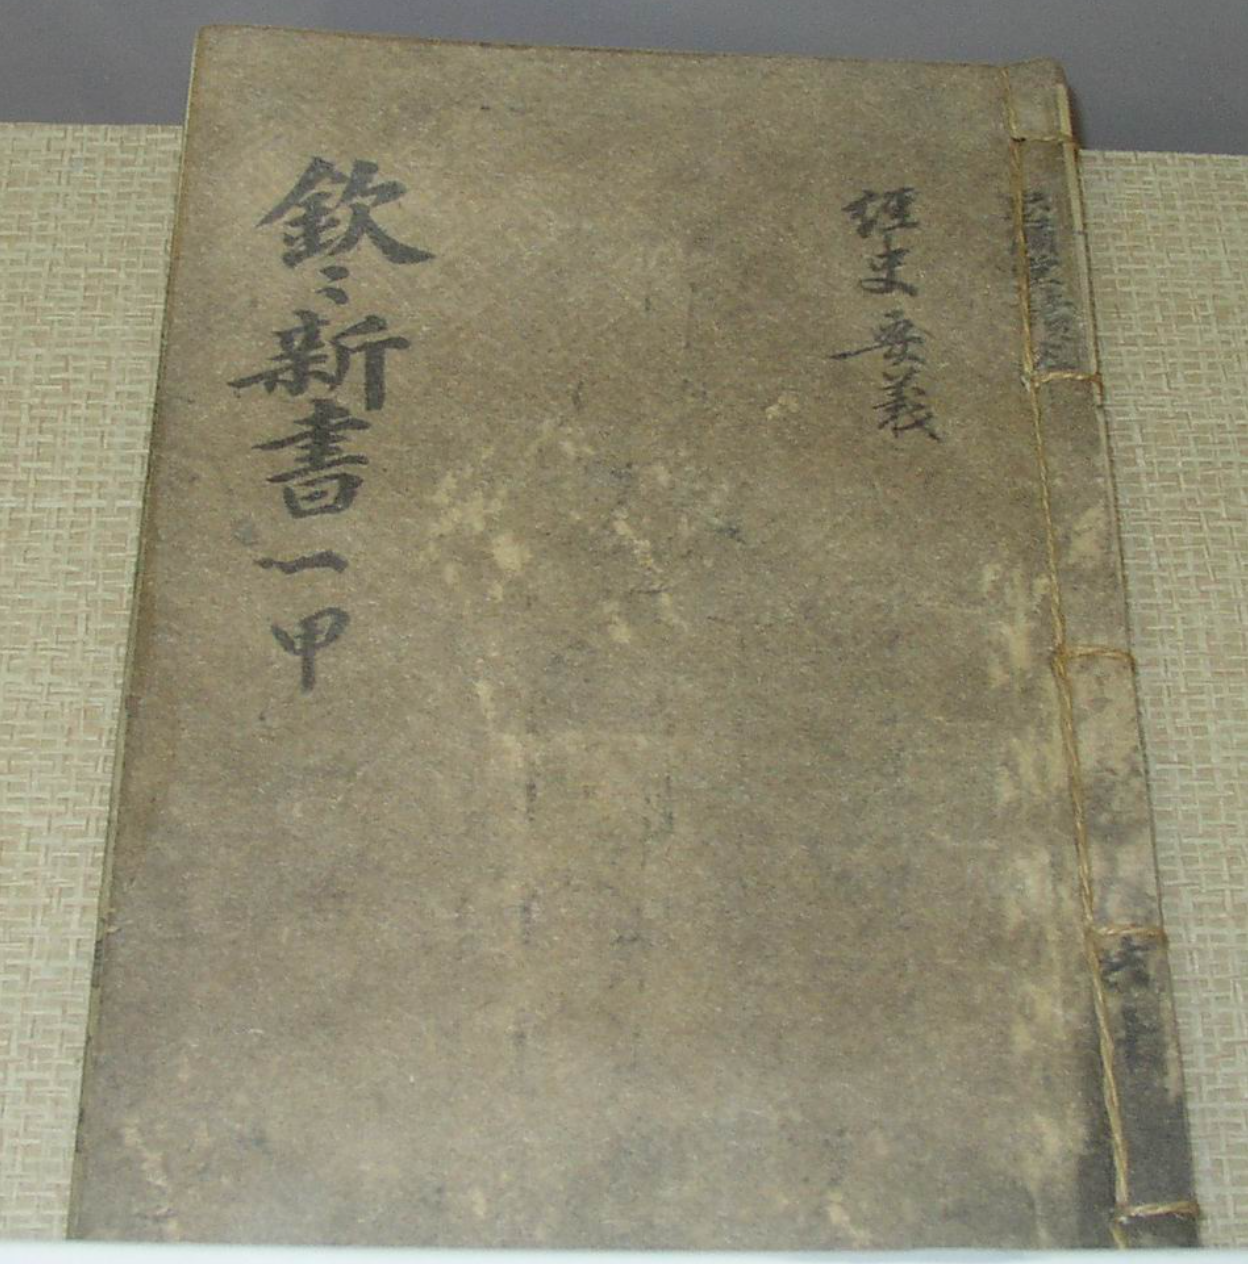 經史要義
欽〻新書 一 甲